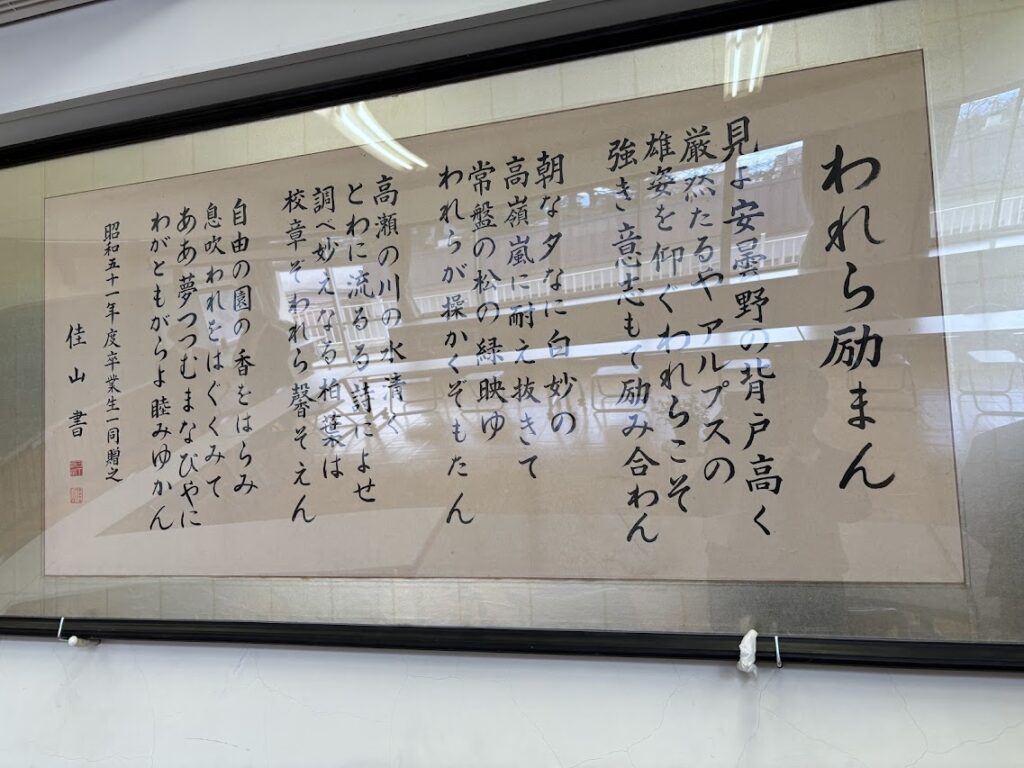 われら励まん
見よ安曇野の背戸高く
厳然たるやアルプスの
雄姿を仰ぐわれらこそ
強き意志もて励み合わん
朝な夕なに白妙の
高嶺嵐に耐え抜きて
常盤の松の緑映ゆ
われらが操かくぞもたん
高瀬の川の水清く
とわに流るる詩によせ
調べ妙えなる柏葉は
校章ぞわれら馨そえん
自由の園の香をはらみ
息吹われをはぐくみて
ああ夢つつむまなびやに
わがともがらよ睦みゆかん
昭和五十一年度卒業生一同贈之
佳山書